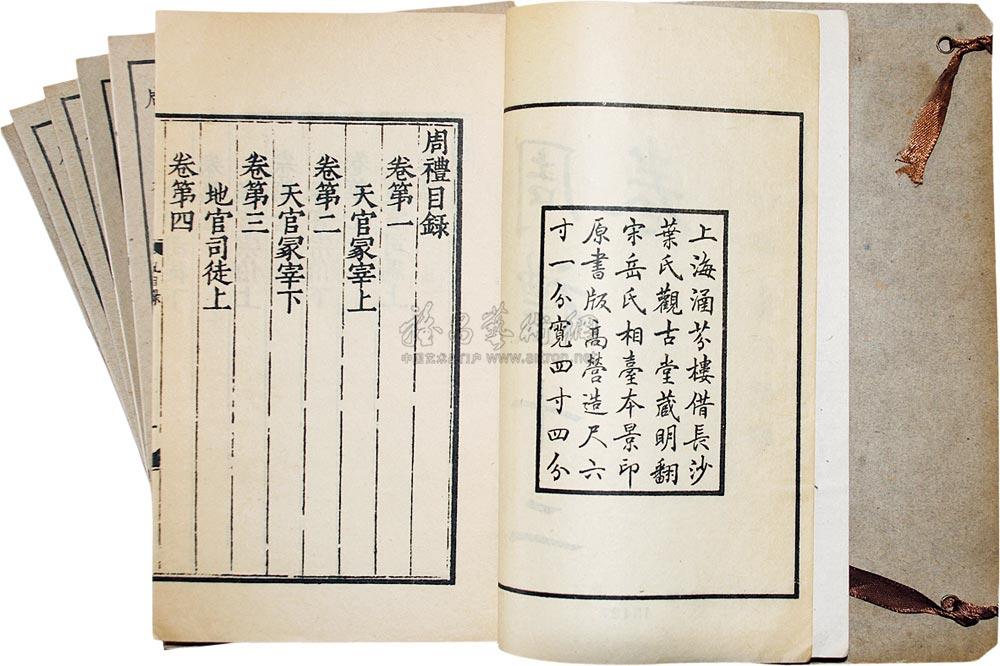 上海涵芬樓借長沙
葉氏觀古堂藏明翻
宋岳氏相臺本景印
原書版高營造尺六
寸一分寬四寸四分
周禮目錄
卷第一
天官冢宰上
卷第二
天官冢宰下
卷第三
地官司徒上
卷第四
中国艺术品门户 www.artron.net